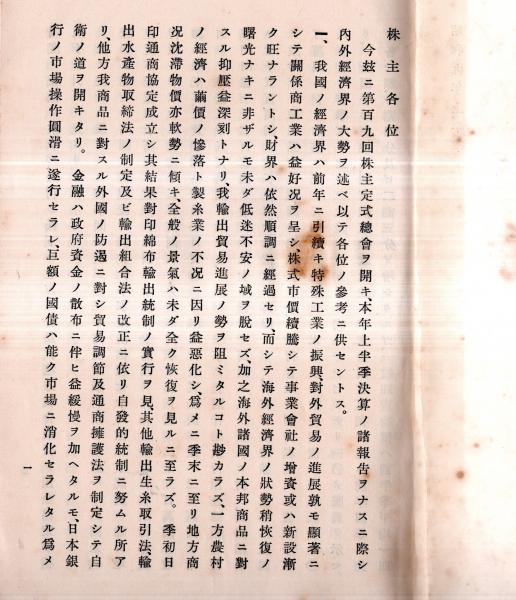 株主各位
今玆ニ第百九回株主定式總會ヲ開キ、本年上半季決算ノ諸報告ヲナスニ際シ
內外經濟界ノ大勢ヲ述ベ以テ各位ノ參考ニ供セントス。
一、我國ノ經濟界ハ前年ニ引續キ特殊工業ノ振興、對外貿易ノ進展孰モ顯著ニ
シテ關係商工業ハ益好况ヲ呈シ、株式市價續騰シテ事業會社ノ增資或ハ新設漸
ク旺ナラントシ、財界ハ依然順調ニ經過セリ、而シテ海外經濟界ノ狀勢稍恢復ノ
曙光ナキニ非ザルモ未ダ低迷不安ノ域ヲ脫セズ、加之海外諸國ノ本邦商品ニ對
スル抑壓益深刻トナリ、我輸出貿易進展ノ勢ヲ阻ミタルコト尠カラズ、一方農村
ノ經濟ハ繭價ノ慘落ト製糸業ノ不况ニ因リ益惡化シ、爲メニ季末ニ至リ地方商
况沈滯物價亦軟勢ニ傾キ、全般ノ景氣ハ未ダ全ク恢復ヲ見ルニ至ラズ。季初日
印通商協定成立シ其結果對印綿布輸出統制ノ實行ヲ見其他輸出生糸取引法、輸
出水產物取締法ノ制定及ビ輸出組合法ノ改正ニ依リ自發的統制ニ努ムル所ア
リ、他方我商品ニ對スル外國ノ防遏ニ對シ貿易調節及通商擁護法ヲ制定シテ自
衛ノ道ヲ開キタリ。金融ハ政府資金ノ散布ニ伴ヒ益緩慢ヲ加ヘタルモ、日本銀
行ノ市場操作圓滑ニ遂行セラレ、巨額ノ國債ハ能ク市場ニ消化セラレタル爲メ
一